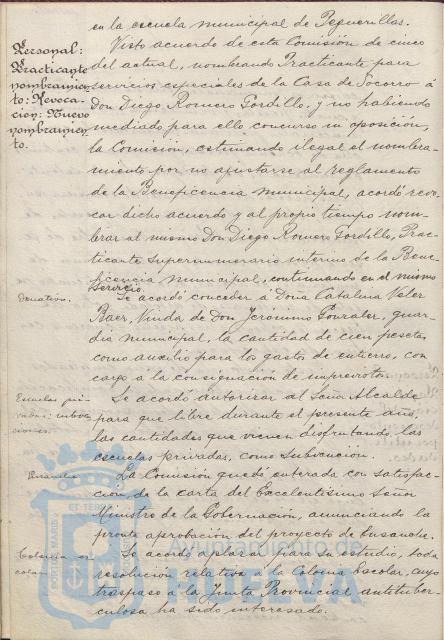 en la escuela municipal de Peguerillas.
Personal:
Practicante
nombramien
to: Revoca-
cion: Nuevo
nombramien
to.
Visto acuerdo de esta Comisión de cinco
del actual, nombrando Practicante para
servicios especiales de la Casa de Socorro á
Don Diego Romero Gordillo, y no habiendo
mediado para ello concurso ni oposición,
la Comisión, estimando ilegal el nombra-
miento por no ajustarse al reglamento
de la Beneficencia municipal, acordó revo-
car dicho acuerdo y al propio tiempo nom-
brar al mismo Don Diego Romero Gordillo, Prac-
ticante Supernumerario interino de la Bene-
ficencia municipal, continuando en el mismo
servicio.
Donativo.
Se acordó conceder á Doña Catalina Valer
Baer, Viuda de Don Jerónimo Gonzalez, guar-
dia municipal, la cantidad de cien pesetas
como auxilio para los gastos de entierro, con
cargo á la consignación de imprevistos.
Escuelas pri-
vadas: subven
ciones.
Se acordó autorizar al Señor Alcalde
para que libre durante el presente año,
las cantidades que vienen disfrutando las
escuelas privadas, como subvencion.
Ensanche
La Comisión quedó enterada con satisfac-
ción, de la carta del Excelentísimo Señor
Ministro de la Gobernación, anunciando la
pronta aprobación del proyecto de Ensanche.
Colonia es-
colar
Se acordó aplazar para su estudio, toda
resolución relativa á la Colonia Escolar, cuyo
traspaso á la Junta Provincial antituber-
culosa ha sido interesado.
Ayuntamiento de
HUELVA